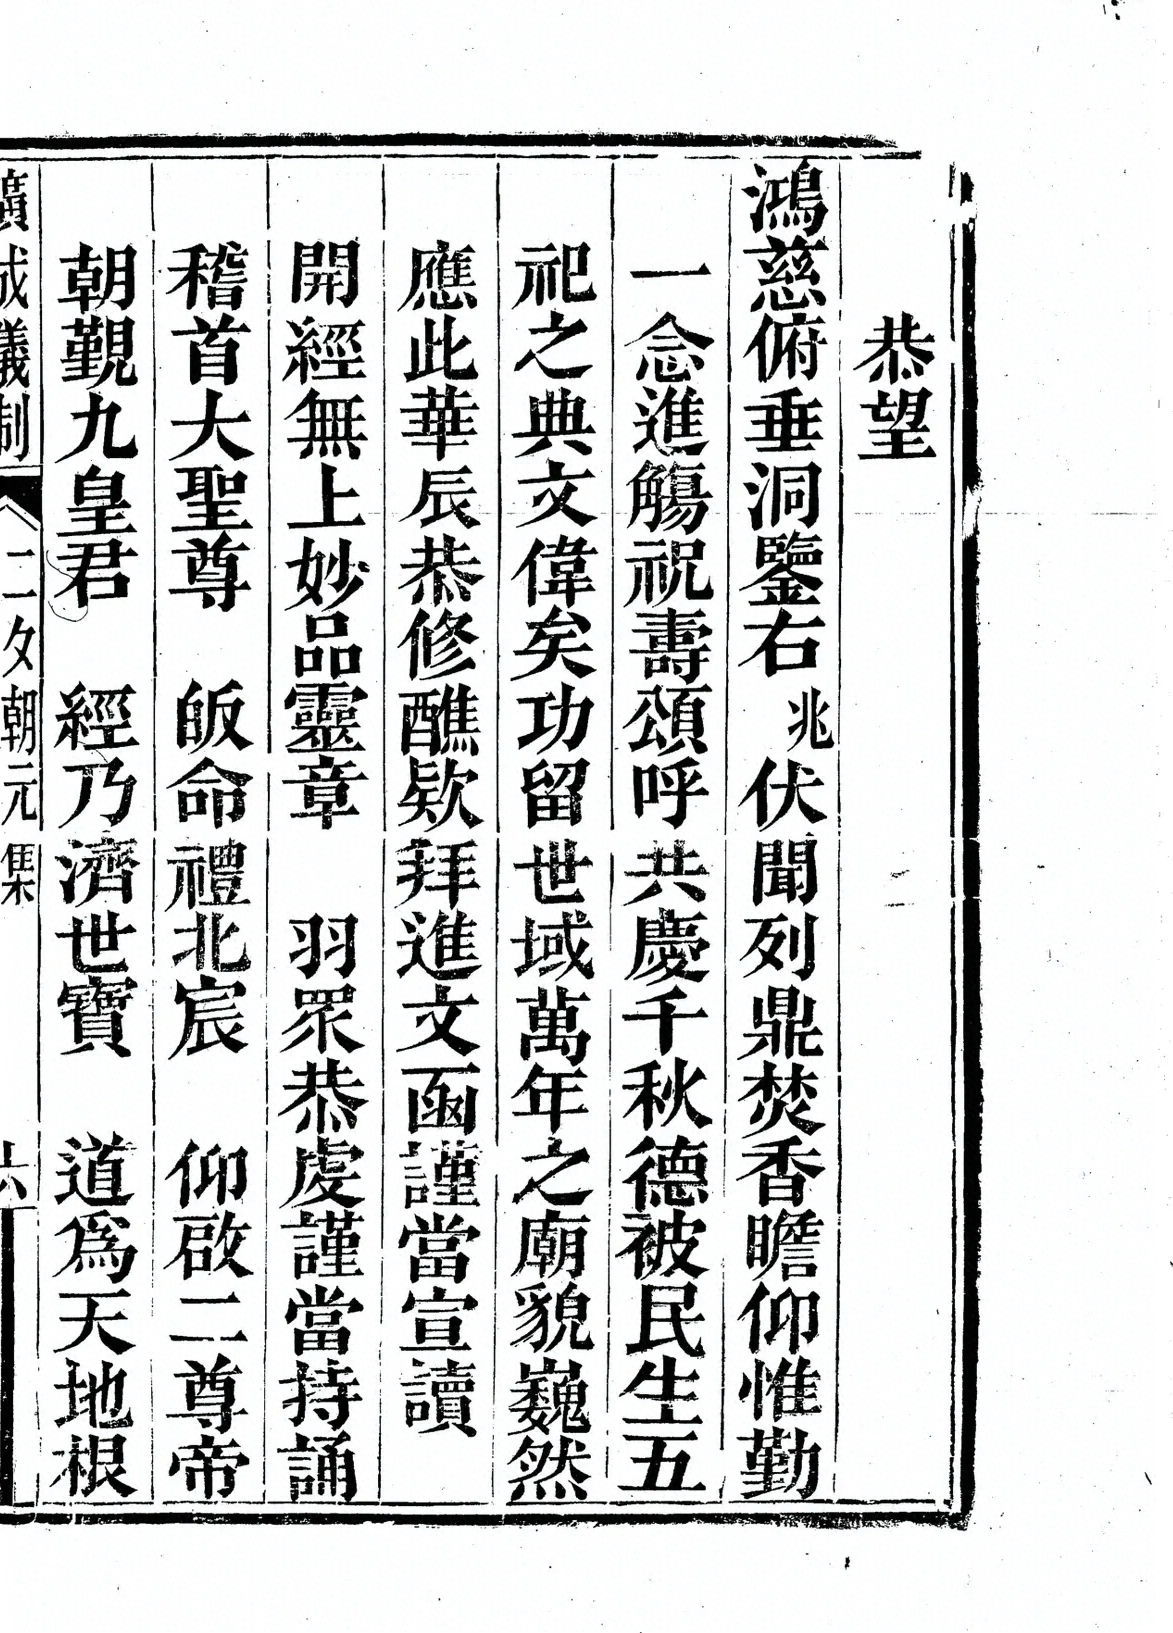 恭望
鴻慈俯垂洞鑒右兆伏聞列鼎焚香瞻仰惟勤
一念進觴祝壽頌呼共慶千秋德被民生五
祀之典文偉矣功留世域萬年之廟貌巍然
應此華辰恭修醮欵拜進文函謹當宣讀
開經無上妙品靈章　羽眾恭虔謹當持誦
稽首大聖尊　皈命禮北宸　仰啟二尊帝
朝覲九皇君　經乃濟世寶　道為天地根
廣成儀制　二夕朝元集　六